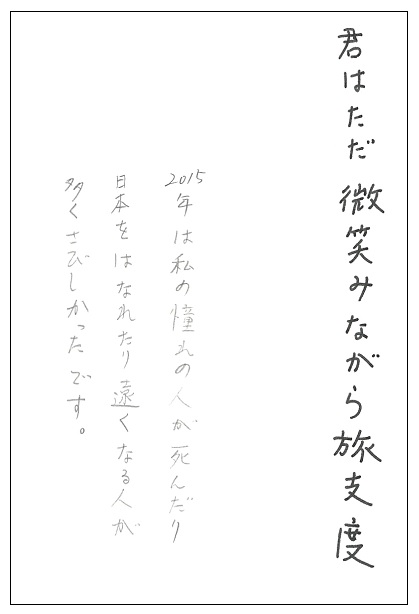 君はただ微笑みながら旅支度
2015年は私の憧れの人が死んだり
日本をはなれたり遠くなる人が
多くさびしかったです。